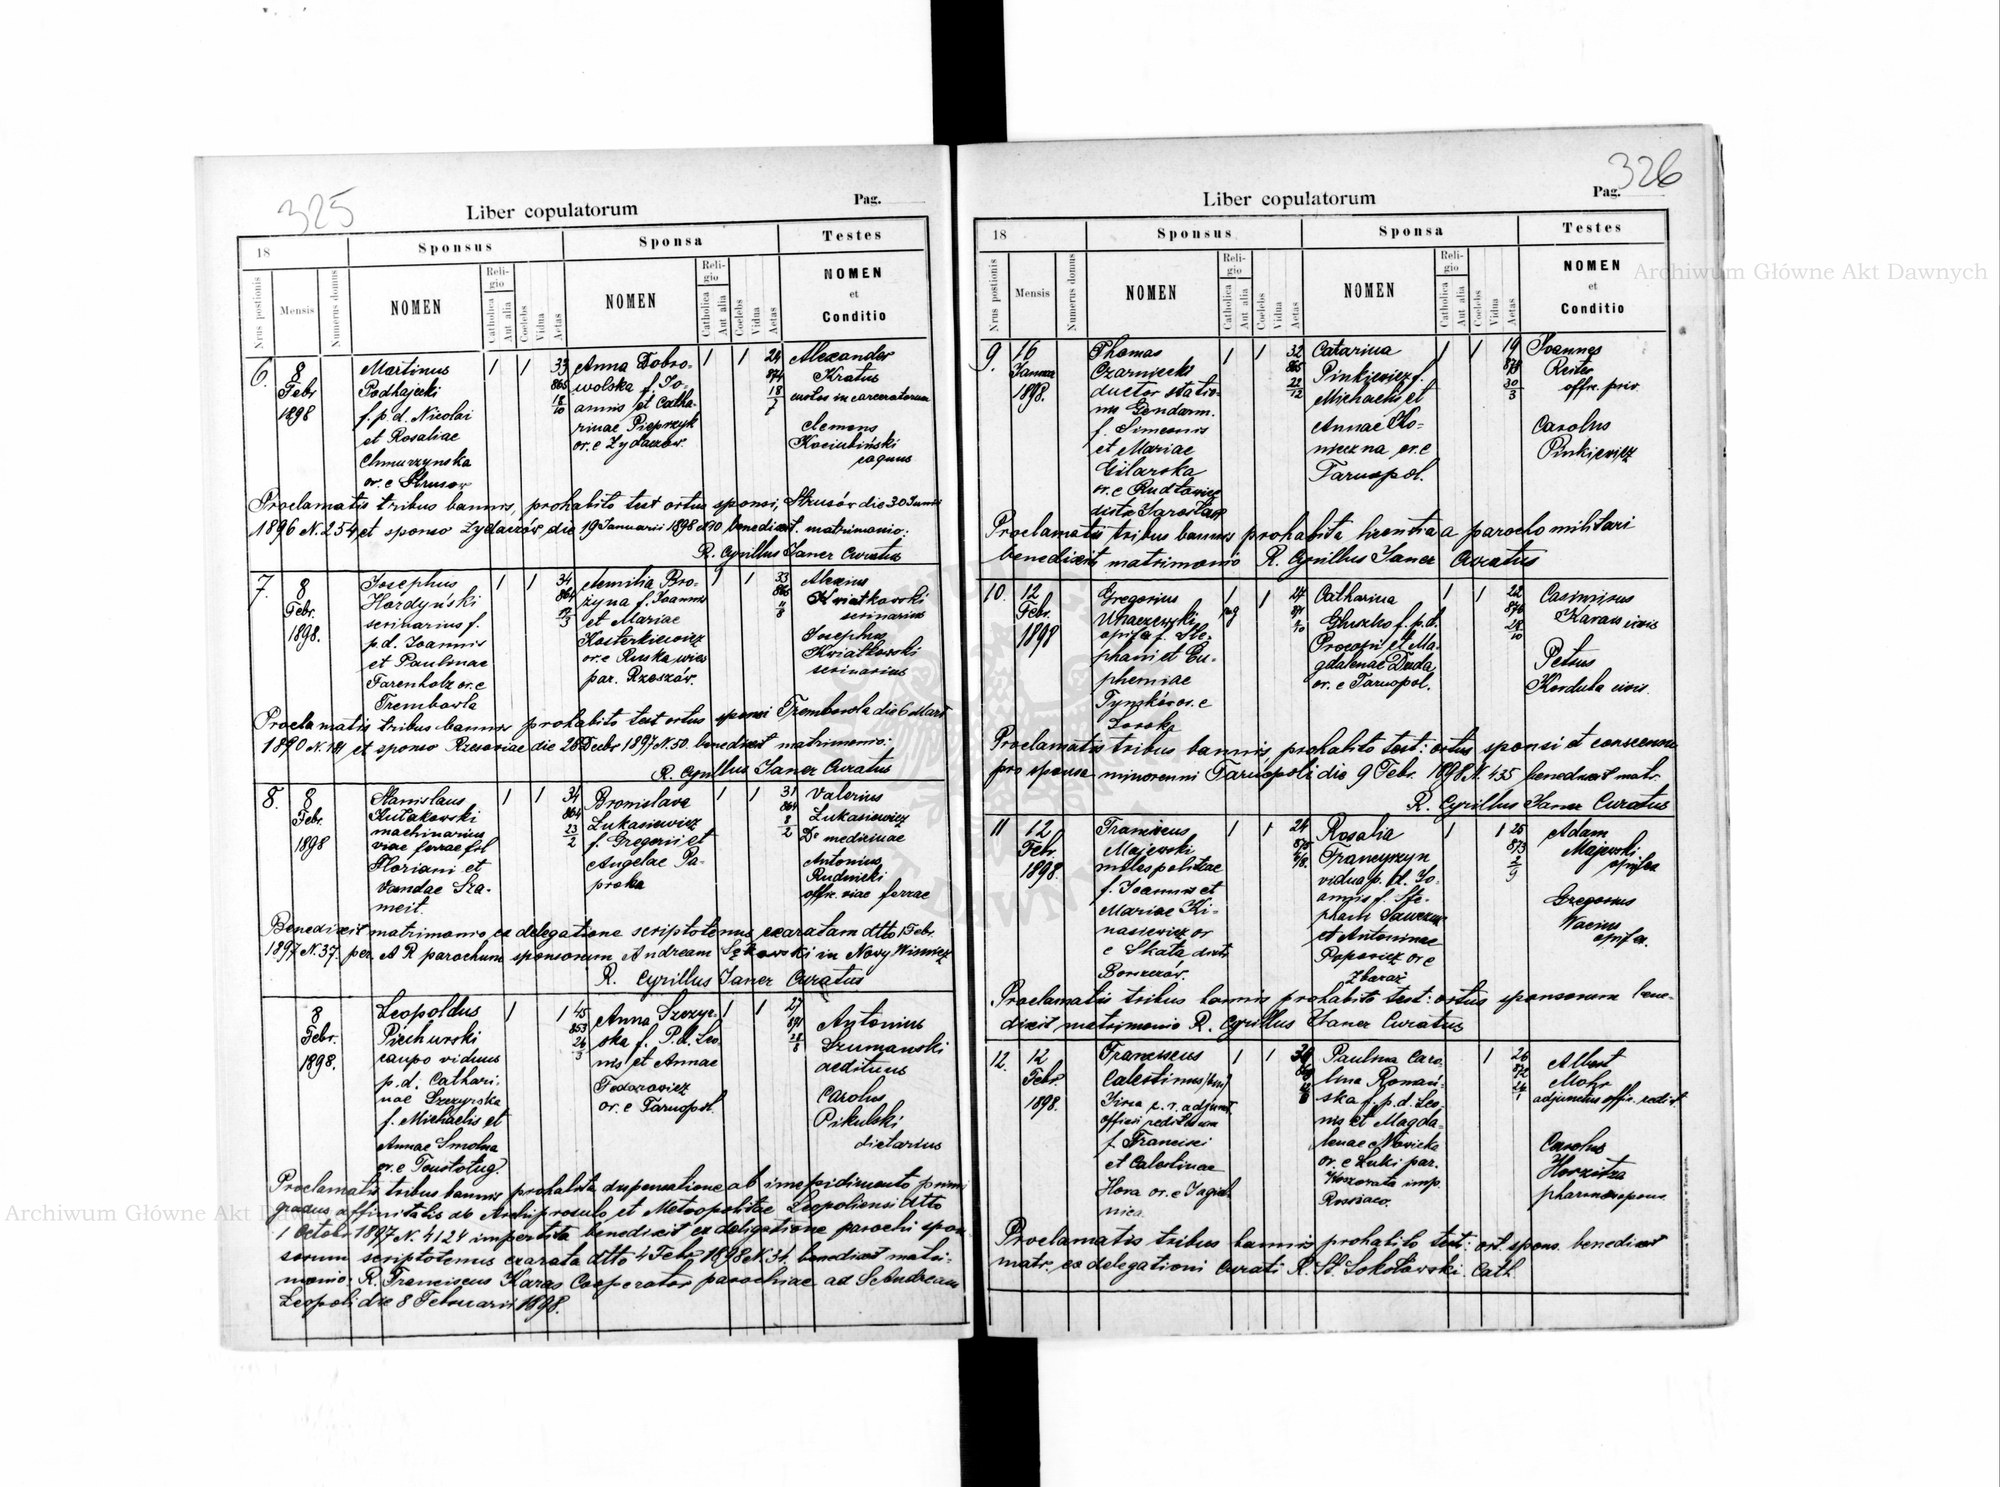 325
Liber copulatorum
Pag.
18
Sponsus
Sponsa
Testes
Nrus postionis
Mensis
Numerus domus
NOMEN
Religio
Catholica
Aut alia
Coelebs
Vidua
Aetas
NOMEN
Religio
Catholica
Aut alia
Coelebs
Vidua
Aetas
NOMEN
et
Conditio
6.
8
Febr
1898
Martinus
Podhajecki
f. p. d. Nicolai
et Rosaliae
Chmurzynska
or. e Strusow
1
1
33
865
18
10
Anna Dobro-
wolska f. Jo-
annis et Catha-
rinae Pieprzyk
or. e Zydaczow.
1
1
24
874
18
7
Alexander
Kratus
custos in carceratorum
Clemens
Kociubiński
Proclamatis tribus bannis, prohabito test ortus sponsi, Strusów die 30 Junii
1896 N. 254 et sponso Zydaczów die 19 Januarii 1898 benedixit matrimonio:
R. Cyrillus Janer Curatus
7.
8
Febr.
1898.
Josephus
Hordyński
scrinarius f.
p. d. Joannis
et Paulinae
Farenholz or. e
Trembowla
1
1
34
864
3
Aemilia Bro-
żyna f. Joannis
et Mariae
Kosterkiewicz
or. e Ruska wies
par. Rzeszów.
1
1
33
865
8
Alexius
Kwiatkowski
scrinarius
Josephus
Kwiatkowski
scrinarius
Proclamatis tribus bannis prohabito test ortus sponsi Trembowla die 6 Mart
1890 N. 181 et sponso Rzesoviae die 28 Decbr 1897 N. 50. benedixit matrimonio:
R. Cyrillus Janer Curatus
8.
8
Febr.
1898
Stanislaus
Kułakowski
machinarius
viae ferrae fil
Floriani et
Vandae Sza-
meit.
1
1
34
864
23
2
Bronislava
Lukasiewicz
f. Gregorii et
Angelae Pa-
proka
1
1
31
864
8
2
Valerius
Lukasiewicz
Dr medicinae
Antonius
Rudnicki
offic. viae ferrae
Benedixit matrimonio ex delegatione scriptotenus exaratam dtto 1 Febr.
1897 N. 37. per. A R parochum sponsorum Andream Sękowski in Nowy Wisnicz
R. Cyrillus Janer Curatus
8
Febr.
1898.
Leopoldus
Piechurski
caupo viduus
p. d. Cathari-
nae Szczyrska
f. Michaelis et
Annae Smolna
or. e Toustolug
1
1
45
853
26
3
Anna Szczyr-
ska f. P. d. Leo
nis et Annae
Fedorowicz
or. e Tarnopol.
1
1
27
871
28
8
Antonius
Szumanski
aedituus
Carolus
Pikulski
dietarius
Proclamatis tribus bannis prohabita dispensatione ab impedimento primi
gradus affinitatis ab Archiprosulo et Metropolitae Leopoliensi dtto
1 Octobr 1897 N. 4124 impertita benedixit ex delegatione parochi spon
sorum scriptotenus exarata dtto 4 Febr 1898 N. 34 benedixit matri-
monio: R. Franciscus Karas Cooperator parochiae ad S. Andream
Leopoli die 8 Februarii 1898.
326
Liber copulatorum
Pag.
18
Sponsus
Sponsa
Testes
Nrus postionis
Mensis
Numerus domus
NOMEN
Religio
Catholica
Aut alia
Coelebs
Vidua
Aetas
NOMEN
Religio
Catholica
Aut alia
Coelebs
Vidua
Aetas
NOMEN
et
Conditio
9.
16
Januar
1898.
Thomas
Czarniecki
ductor statio-
nis Gendarm.
f. Simeonis
et Mariae
Gilarska
or. e Rudłowice
distr Jarosław
1
1
32
865
22
12
Catarina
Pinkiewicz f.
Michaelis et
Annae Ko-
nieczna or. e
Tarnopol.
1
1
19
879
30
3
Joannes
Reiter
offic. priv.
Carolus
Pinkiewicz
Proclamatis tribus bannis prohabita licentia a parocho militari
benedixit matrimonio R. Cyrillus Janer Curatus
10.
12
Febr.
1898
Gregorius
opifex f. Ste-
phani et Eu-
phemiae
Tynsków or. e
1
1
27
871
Catharina
Głuszko f. p. d.
Procopii et Ma-
gdalenae Duda
or. e Tarnopol.
1
1
22
876
28
10
Casimirus
Karass civis
Petrus
Korduba civis.
Proclamatis tribus bannis, prohabito test: ortus sponsi et consensu
pro sponsa minorenni Tarnopoli die 9 Febr. 1898 N. 435 benedixit matr.
R. Cyrillus Janer Curatus
11
12
Febr.
1898.
Franciscus
Majewski
miles politiae
f. Joannis et
Mariae Ki-
nasiewicz or
e Skała distr.
Borszczów.
1
1
24
873
Rosalia
Franczyzyn
vidua p. d. Jo-
annis f. Ste-
phani Sawczuk
et Antoninae
Popowicz or e
Zbaraż
1
1
25
873
2
9
Adam
Majewski
opifex
Gregorius
Wacius
opifex.
Proclamatis tribus bannis prohabito test: ortus sponsorum bene-
dixit matrimonio R. Cyrillus Janer Curatus
12.
12
Febr.
1898.
Franciscus
Calestinus (bin)
officii redituum
f. Francisci
et Calestinae
Hora or. e Jagiel
nica.
1
1
Paulina Caro
lina Romań-
ska f. p. d. Leo
nis et Magda-
lenae Novicka
or. e Łuki par.
imp.
Rossiaco.
1
26
872
24
1
Albert
Mohr
adjunctus offic. redit.
Carolus
Horzitza
pharmacopoeus
Proclamatis tribus bannis prohabito test: ort. spons. benedixit
matr. ex delegationi Curati R. St. Sokołowski Cath.
Archiwum Główne Akt Dawnych
Archiwum Główne Akt Dawnych